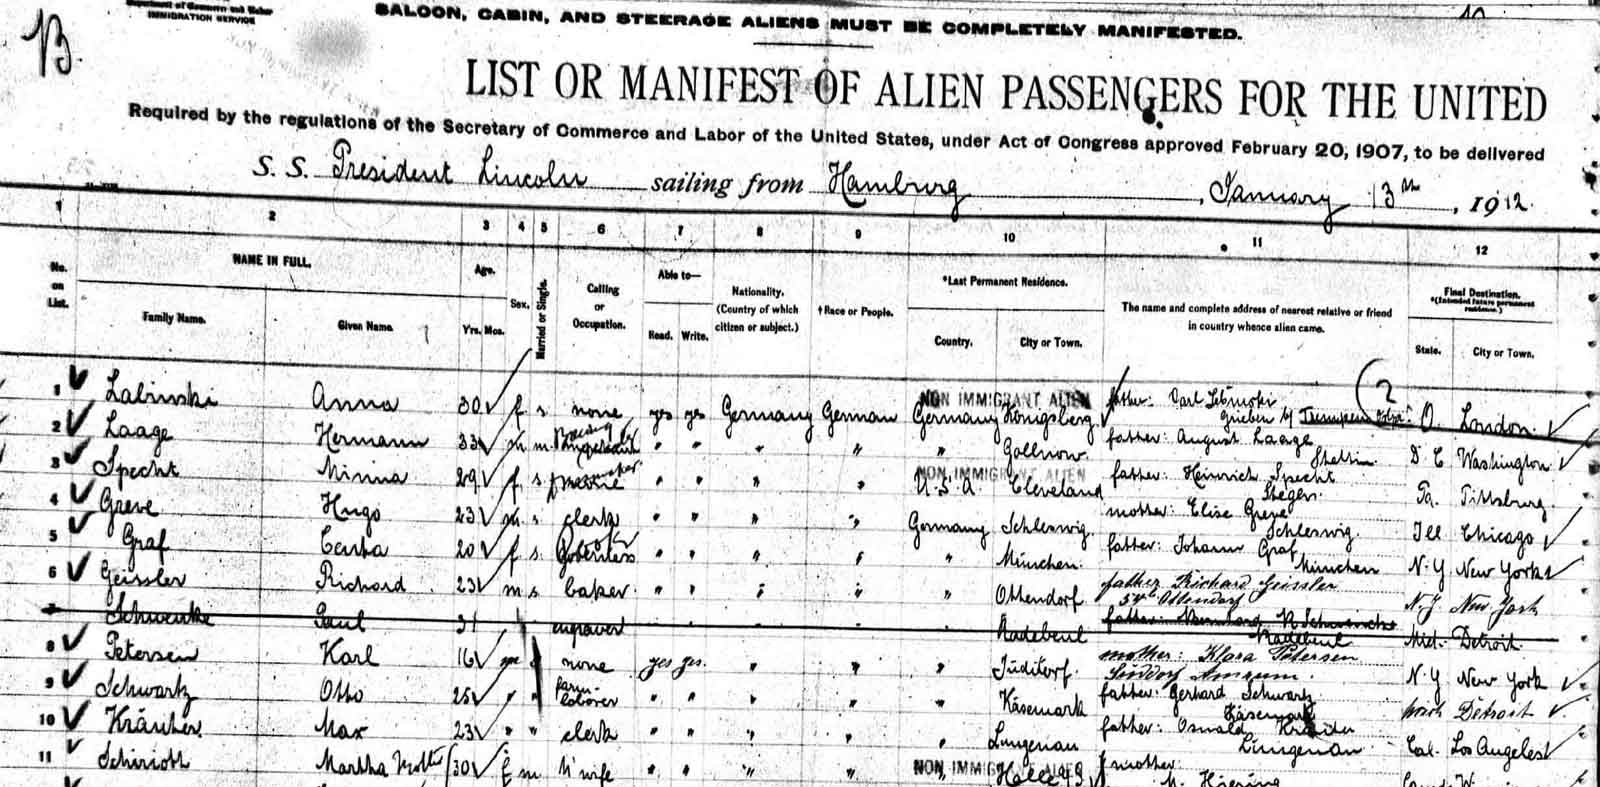 B.
Department of Commerce and Labor
IMMIGRATION SERVICE
SALOON, CABIN, AND STEERAGE ALIENS MUST BE COMPLETELY MANIFESTED.
LIST OR MANIFEST OF ALIEN PASSENGERS FOR THE UNITED
Required by the regulations of the Secretary of Commerce and Labor of the United States, under Act of Congress approved February 20, 1907, to be delivered
S. S. President Lincoln sailing from Hamburg, January 13th, 1912.
1 2 3 4 5 6 7 8 9 10 11 12
No. on List. NAME IN FULL. Family Name. Given Name. Age. Yrs. Mos. Sex. Married or Single. Calling or Occupation. Able to— Read. Write. Nationality. (Country of which citizen or subject.) †Race or People. *Last Permanent Residence. Country. City or Town. The name and complete address of nearest relative or friend in country whence alien came. Final Destination. *(Intended future permanent residence.) State. City or Town.
NON IMMIGRANT ALIEN
1 Anna 30 f s none yes yes Germany German Germany Königsberg father: Carl O. London
2 Laage Hermann 33 m m " " " " " Gollnow father: August Laage Stettin D. C Washington
NON IMMIGRANT ALIEN
3 Specht Minna 29 f s " " " " U.S.A. Cleveland father: Heinrich Specht Pa. Pittsburg
4 Greve Hugo 23 m s clerk " " " " Germany Schleswig mother: Elise Greve Schleswig Ill Chicago
5 Graf 20 f s " " " " " München father: Johann Graf München N.Y New York
6 Geissler Richard 23 m s baker " " " " " Ottendorf father Richard Geissler Ottendorf N.J. New York
7 Schwenke Paul 31 engraver Radebeul father: Radebeul Mich. Detroit
8 Petersen Karl 16 m none yes yes " " " mother: Klara Petersen N.Y. New York
9 Schwartz Otto 25 " " farm-laborer " " " " " Käsemark father: Gerhard Schwartz Käsemark Detroit
10 Max 23 " " clerk " " " " " Lungenau father: Oswald Cal. Los Angeles
NON IMMIGRANT ALIEN
11 Martha 30 f m wife " " " " " Halle mother: